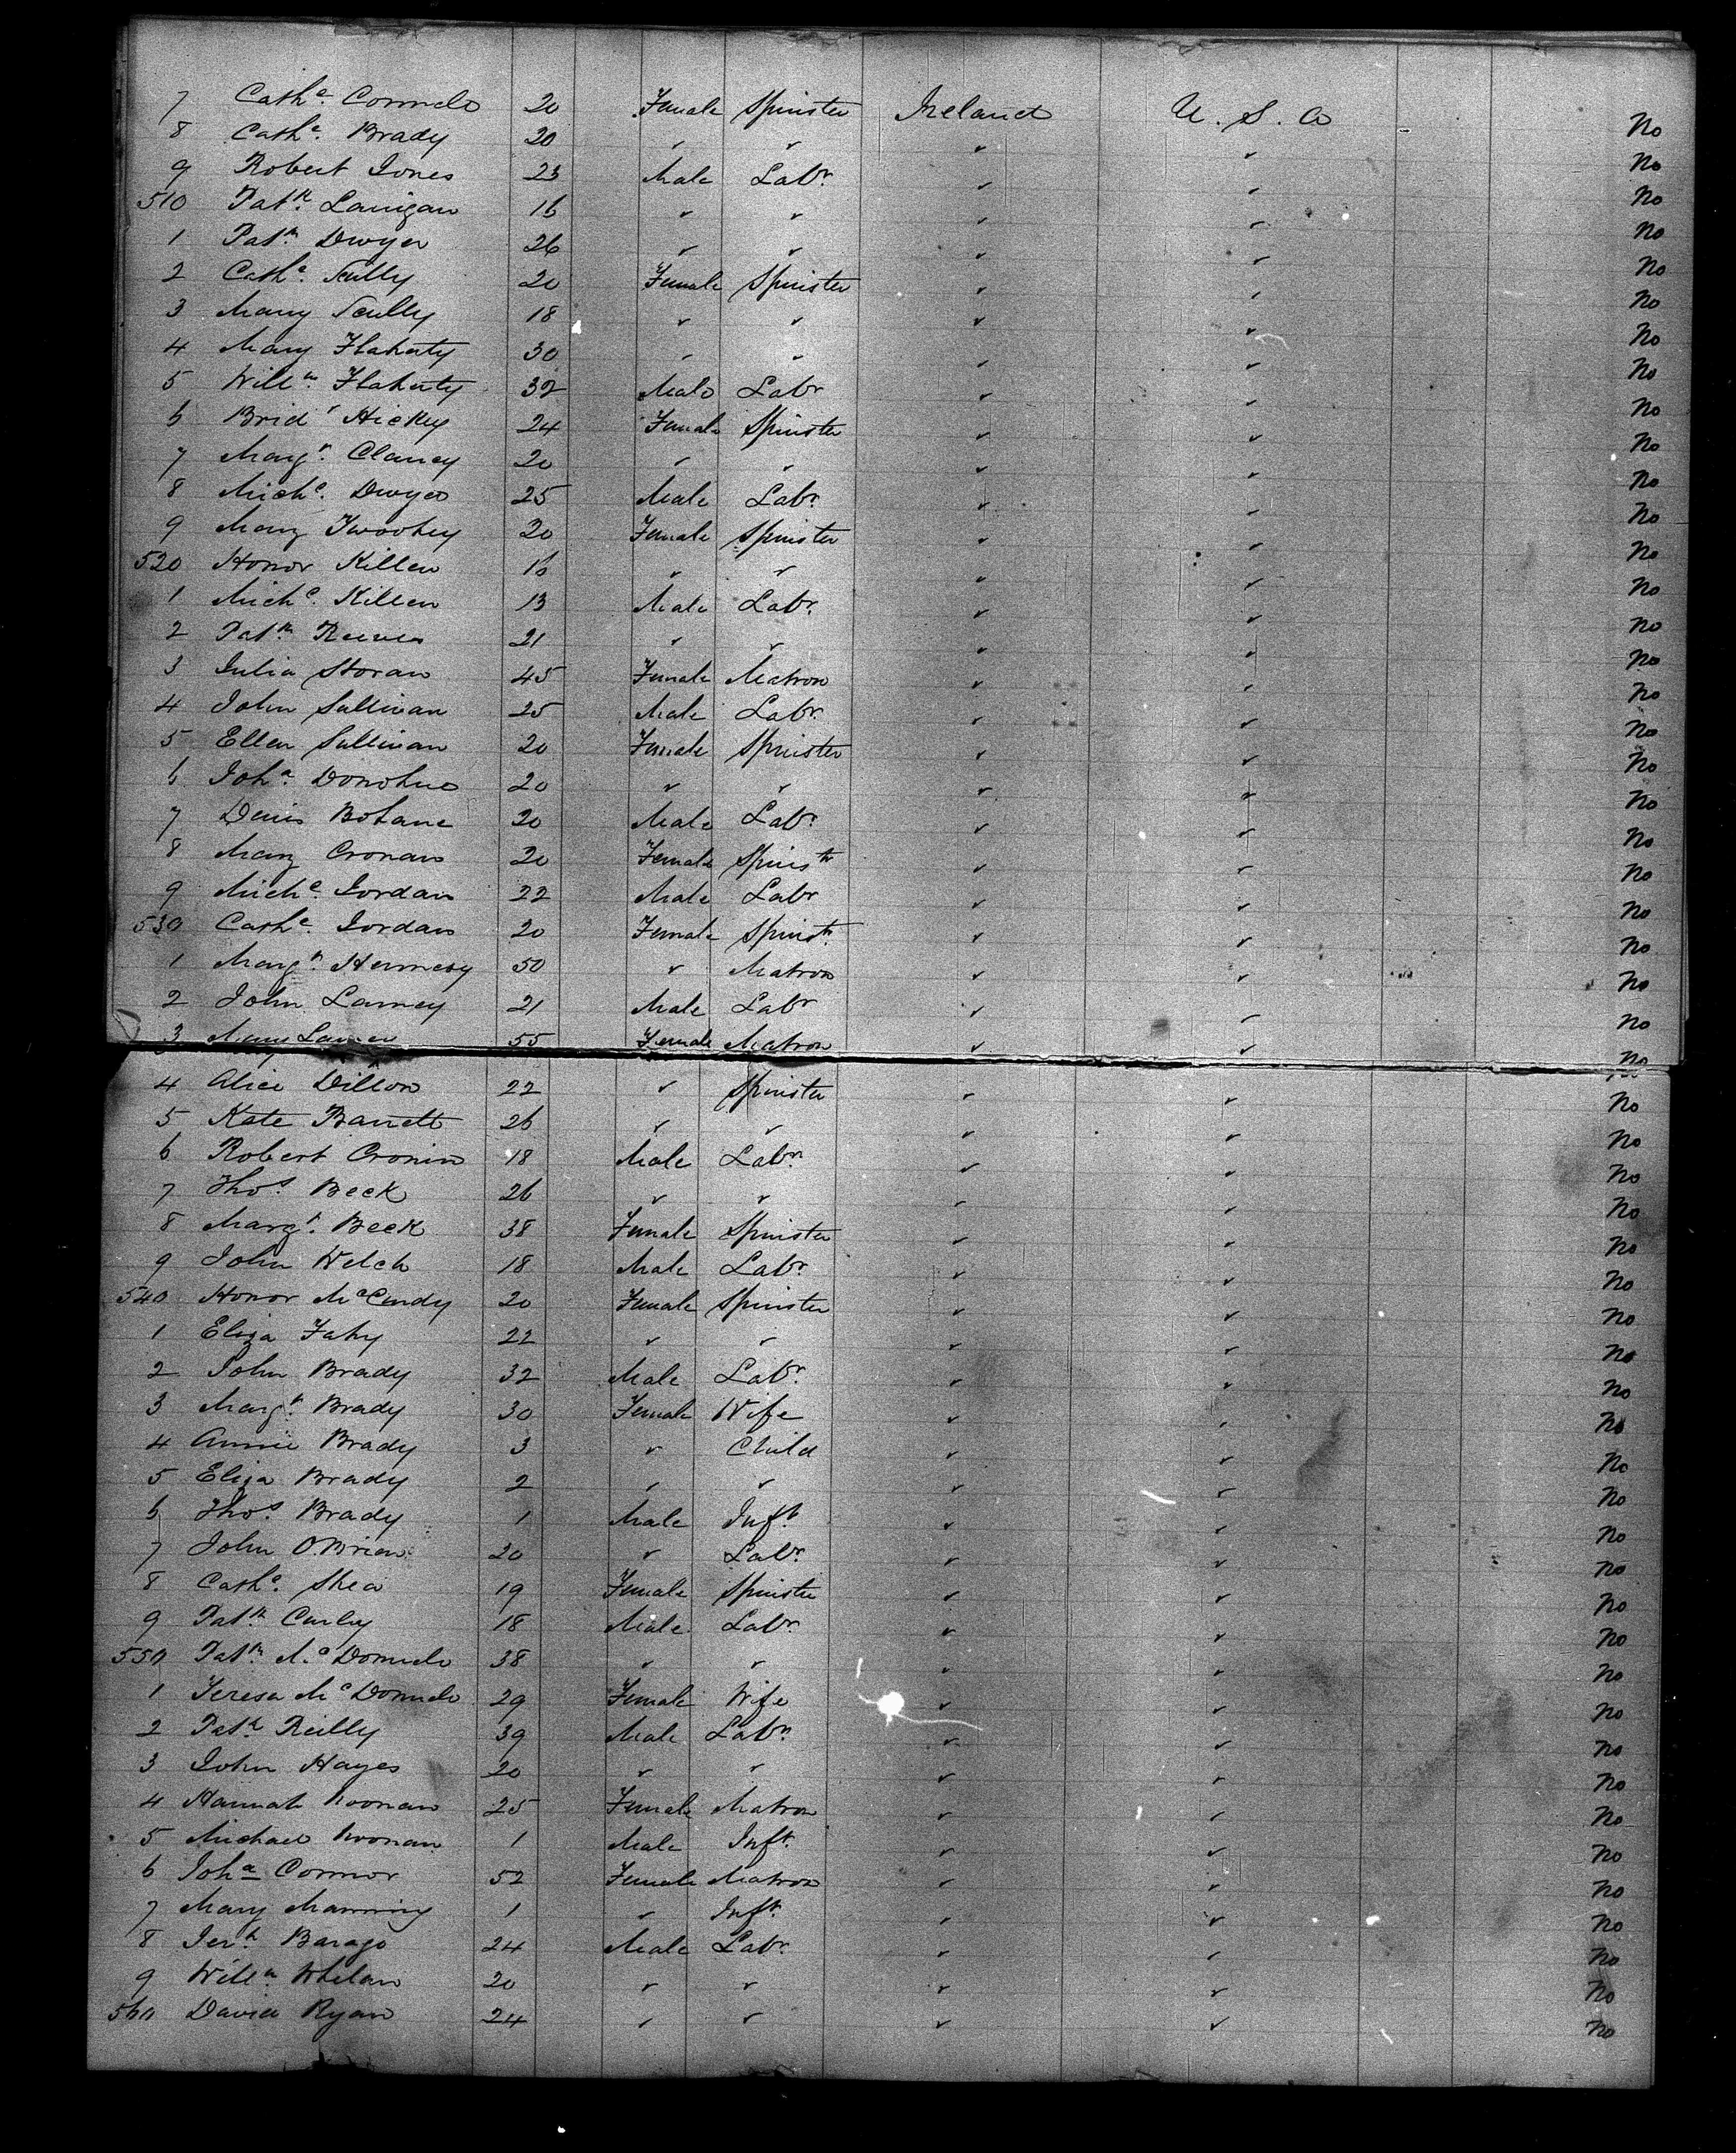 7 Cathe. Connelo 20 Female Spinster Ireland U. S. A No
8 Cathe. Brady 20 " " " " No
9 Robert Jones 23 Male Labr. " " No
510 Patk. Lanigan 16 " " " " No
1 Patk. Dwyer 26 " " " " No
2 Cathe. Scully 20 Female Spinster " " No
3 Mary Scully 18 " " " " No
4 Mary Flaherty 30 " " " " No
5 Willm. Flaherty 32 Male Labr " " No
6 Bridt Hickey 24 Female Spinster " " No
7 Margt. Clancy 20 " " " " No
8 Michl. Dwyer 25 Male Labr. " " No
9 Mary Twoohey 20 Female Spinster " " No
520 Honor Killen 16 " " " " No
1 Michl. Killen 13 Male Labr. " " No
2 Patk. Reeves 21 " " " " No
3 Julia Horan 45 Female Matron " " No
4 John Sullivan 25 Male Labr. " " No
5 Ellen Sullivan 20 Female Spinster " " No
6 Joha. Donohue 20 " " " " No
7 Denis Bohane 20 Male Labr. " " No
8 Mary Cronan 20 Female Spinstr " " No
9 Michl. Jordan 22 Male Labr " " No
530 Cathe. Jordan 20 Female Spinstr. " " No
1 Margt. Hennesy 50 " Matron " " No
2 John Larney 21 Male Labr " " No
3 Mary 55 Female Matron " " No
4 Alice Dillon 22 " Spinster " " No
5 Kate Barrett 26 " " " " No
6 Robert Cronin 18 Male Labr. " " No
7 Thos. Beck 26 " " " " No
8 Margt. Beck 38 Female Spinster " " No
9 John Welch 18 Male Labr. " " No
540 Honor McCurdy 20 Female Spinster " " No
1 Eliza Fahy 22 " " " " No
2 John Brady 32 Male Labr. " " No
3 Margt. Brady 30 Female Wife " " No
4 Annie Brady 3 " Child " " No
5 Eliza Brady 2 " " " " No
6 Thos. Brady 1 Male Inft. " " No
7 John O.Brien 20 " Labr. " " No
8 Cathe. Shea 19 Female Spinster " " No
9 Patk. Curley 18 Male Labr. " " No
550 Patk. McDonnelo 38 " " " " No
1 Teresa McDonnelo 29 Female Wife " " No
2 Patk Reilly 39 Male Labr. " " No
3 John Hayes 20 " " " " No
4 Hannah Noonan 25 Female Matron " " No
5 Michael Noonan 1 Male Inft. " " No
6 Joha Connor 52 Female Matron " " No
7 Mary Manning 1 " Inft. " " No
8 Jerh. Barago 24 Male Labr. " " No
9 Willm. Whelan 20 " " " " No
560 David Ryan 24 " " " " No